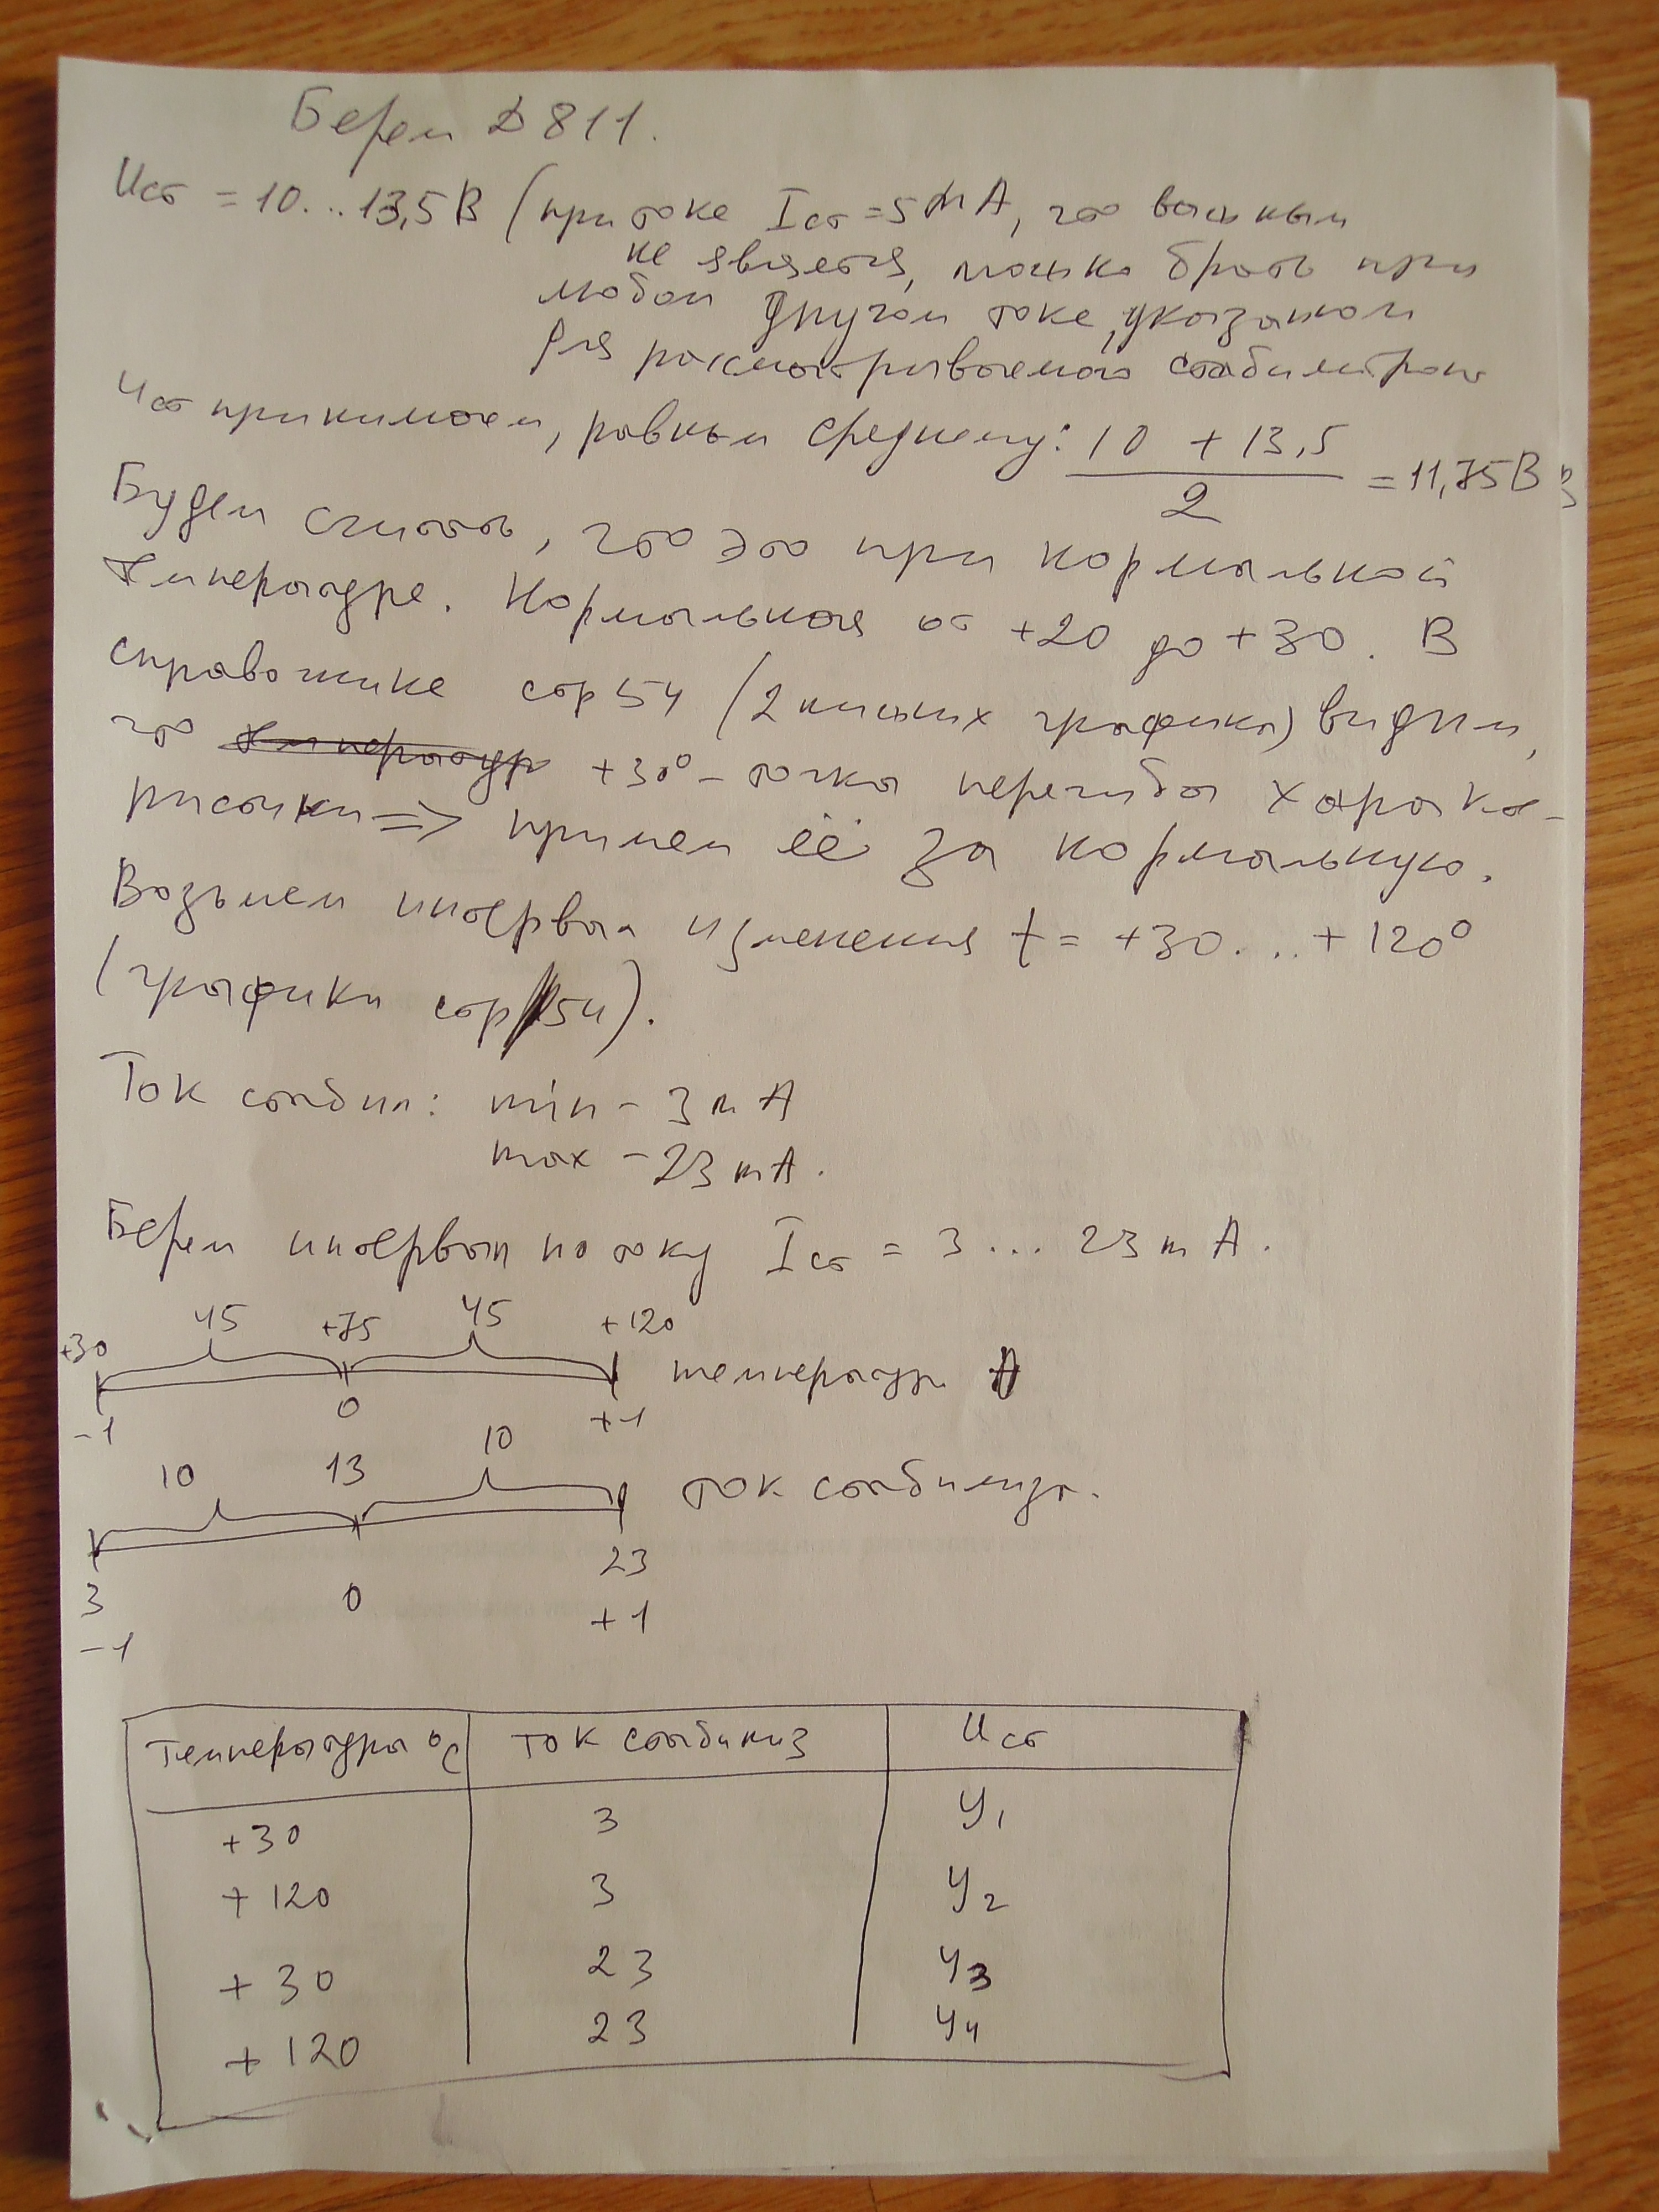 Берем D811.
Uст = 10...13,5 В (при токе Iст = 5 mA, что важным
не является, можно брать при
любом другом токе, указаном
для рассматриваемого стабилитрона
Uст принимаем, равным среднему: (10 + 13,5)/2 = 11,75 В
Будем считать, что это при нормальной
температуре. Нормальная от +20 до +30. В
справочнике стр 54 (2 нижних графика) видим,
что температур +30° – точка перегиба характе-
ристики => примем её за нормальную.
Возьмем интервал изменения t = +30...+120°
(графики стр 54).
Ток стабил: min – 3 mA
max – 23 mA.
Берем интервал по току Iст = 3 ... 23 mA.
45 45
+30 +75 +120
температура
-1 0 +1
10 13 10
ток стабилиз.
3 0 23
-1 +1
Температура °C Ток стабилиз Uст
+30 3 У1
+120 3 У2
+30 23 У3
+120 23 У4